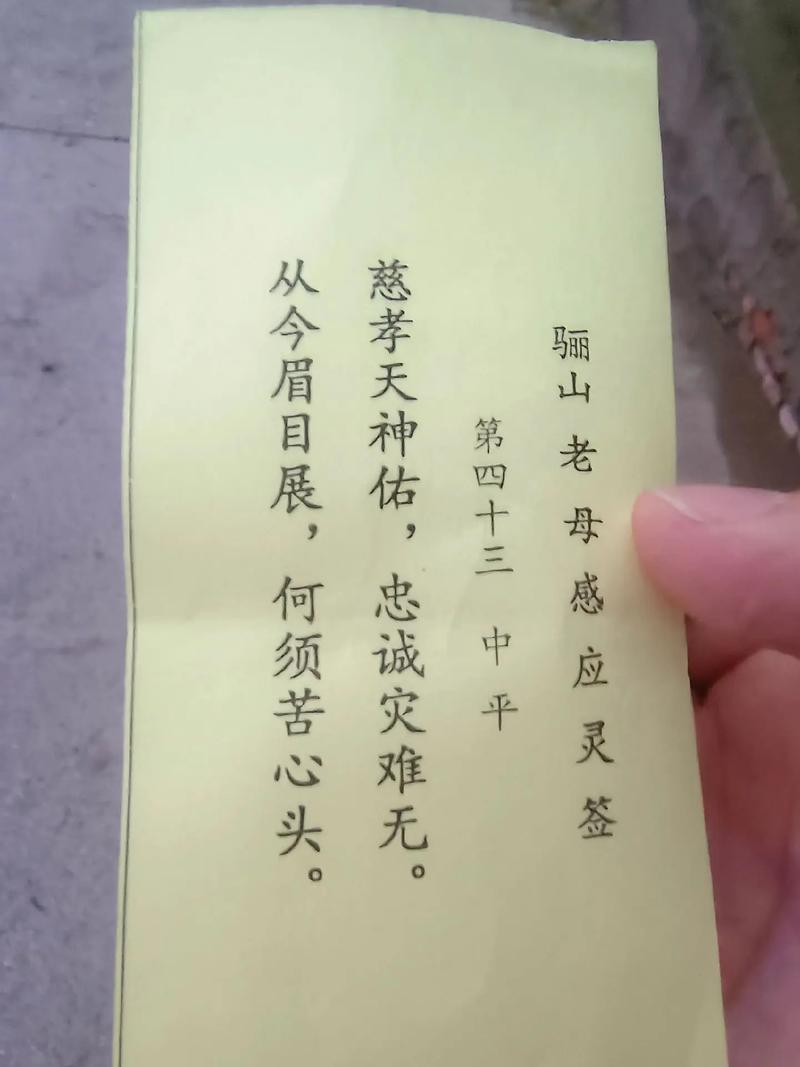 骊山老母感应灵签
第四十三 中平
慈孝天神佑，忠诚灾难无。
从今眉目展，何须苦心头。